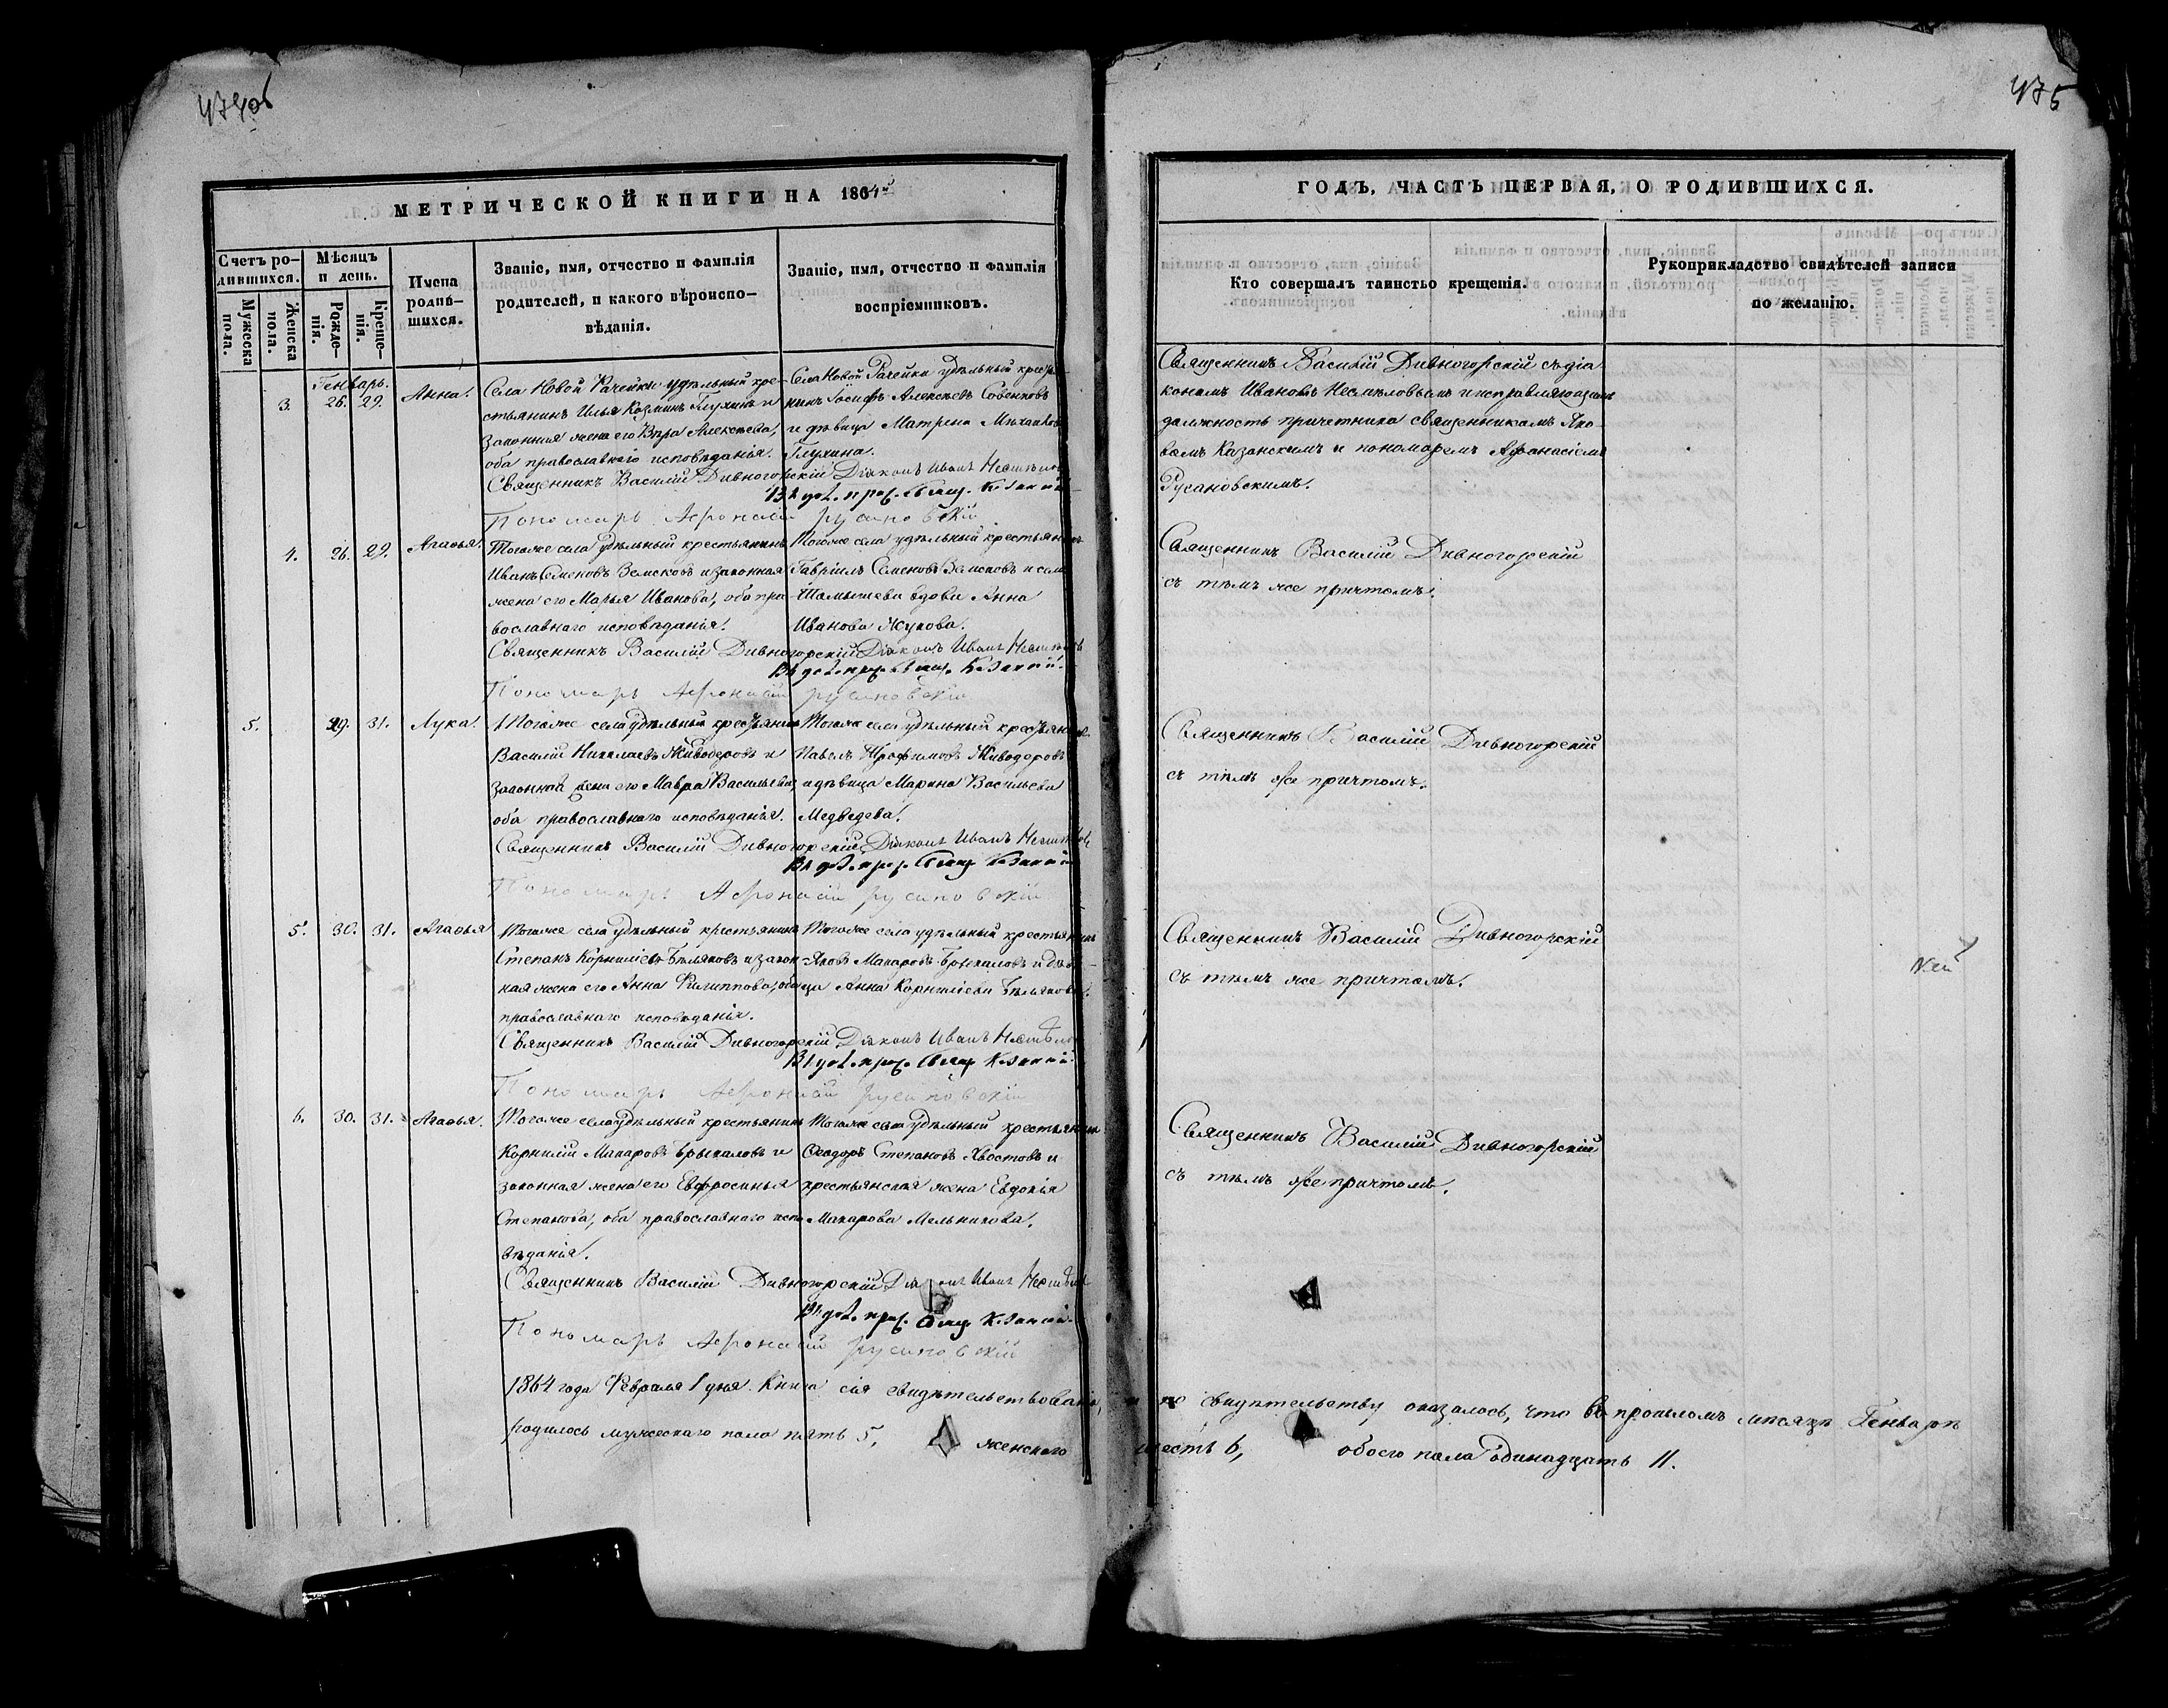 474 об
МЕТРИЧЕСКОЙ КНИГИ НА 1864й
Счетъ родившихся.
Мѣсяцъ и день.
Мужеска пола.
Женска пола.
Рожденія.
Крещенія.
Имена родившихся.
Званіе, имя, отчество и фамилія
родителей, и какого вѣроиспо-
вѣданія.
Званіе, имя, отчество и фамилія
воспріемниковъ.
Генварь.
3. 26. 29. Анна.
Села Новой Рачейки удѣльный кре-
стьянинъ Илья Козминъ Глухинъ и
законная жена его Вѣра Алексѣева,
оба православнаго исповѣданія.
Села Новой Рачейки удѣльный крестья-
нинъ Іосифъ Алексѣевъ Совенковъ
и дѣвица Матрена Михайлова
Глухина.
Священникъ Василій Дивногорскій Діаконъ Иванъ Несмѣловъ
Пономарь Афонасій Русановскій
4. 26. 29. Агафья.
Тогоже села удѣльный крестьянинъ
Иванъ Семеновъ Земсковъ и законная
жена его Марья Иванова, оба пра-
вославнаго исповѣданія.
Тогоже села удѣльный крестьянинъ
Гавріилъ Семеновъ Земсковъ и села
Шамышева вдова Анна
Иванова Жукова.
Священникъ Василій Дивногорскій Діаконъ Иванъ Несмѣловъ
Пономарь Афонасій Русановскій
5. 29. 31. Лука.
Тогоже села удѣльный крестьянинъ
Василій Николаевъ Живодеровъ и
законная жена его Мавра Васильева,
оба православнаго исповѣданія.
Тогоже села удѣльный крестьянинъ
Павелъ Трофимовъ Живодеровъ
и дѣвица Марина Васильева
Медведева.
Священникъ Василій Дивногорскій Діаконъ Иванъ Несмѣловъ
Пономарь Афонасій Русановскій
5. 30. 31. Агафья
Тогоже села удѣльный крестьянинъ
Степанъ Корниліевъ Бѣляковъ и закон-
ная жена его Анна Филиппова, оба
православнаго исповѣданія.
Тогоже села удѣльный крестьянинъ
Яковъ Макаровъ Брыкаловъ и дѣви-
ца Анна Корниліева Бѣлякова.
Священникъ Василій Дивногорскій Діаконъ Иванъ Несмѣловъ
Пономарь Афонасій Русановскій
6. 30. 31. Агафья.
Тогоже села удѣльный крестьянинъ
Корнилій Макаровъ Брыкаловъ и
законная жена его Евфросинья
Степанова, оба православнаго испо-
вѣданія.
Тогоже села удѣльный крестьянинъ
Ѳеодоръ Степановъ Хвостовъ и
крестьянская жена Евдокія
Макарова Мельникова.
Священникъ Василій Дивногорскій Діаконъ Иванъ Несмѣловъ
Пономарь Афонасій Русановскій
1864 года Февраля 1 дня. Книга сія свидѣтельствована,
родилось мужескаго пола пять 5, женскаго
475
ГОДЪ, ЧАСТЬ ПЕРВАЯ, О РОДИВШИХСЯ.
Кто совершалъ таинство крещенія.
Рукоприкладство свидѣтелей записи
по желанію.
Священникъ Василій Дивногорскій съ діа-
кономъ Иваномъ Несмѣловымъ и исправляющимъ
должность причетника священникомъ Яко-
вомъ Казанскимъ и пономаремъ Афанасіемъ
Русановскимъ.
Священникъ Василій Дивногорскій
съ тѣмъ же причтомъ.
Священникъ Василій Дивногорскій
съ тѣмъ же причтомъ.
Священникъ Василій Дивногорскій
съ тѣмъ же причтомъ.
Священникъ Василій Дивногорскій
съ тѣмъ же причтомъ.
и по свидѣтельству оказалось, что въ прошломъ мѣсяцѣ Генварѣ
шесть 6, обоего пола одинадцать 11.